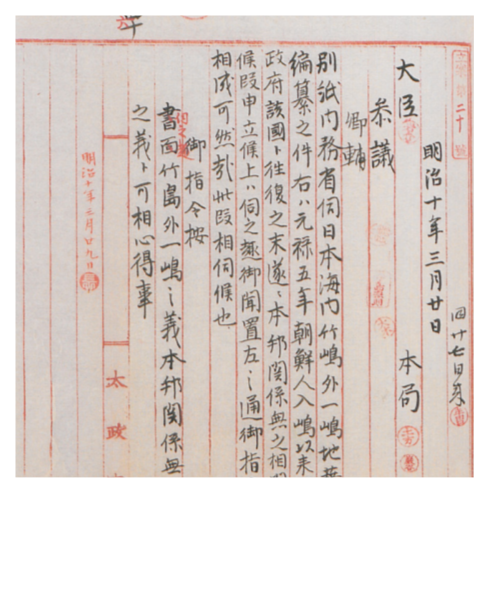 明治十年三月廿日
本局
大臣
参議
卿輔
別紙内務省伺日本海内竹嶋外一嶋地
編纂之件右ハ元禄五年朝鮮人入嶋以来
政府該国ト往復之末遂ニ本邦関係無之相
候段申立候上ハ伺之趣御聞置左之通御指
相成可然哉此段相伺候也
御指令按
伺之趣
書面竹島外一嶋之義本邦関係無
之義ト可相心得事
明治十年三月廿九日
太政